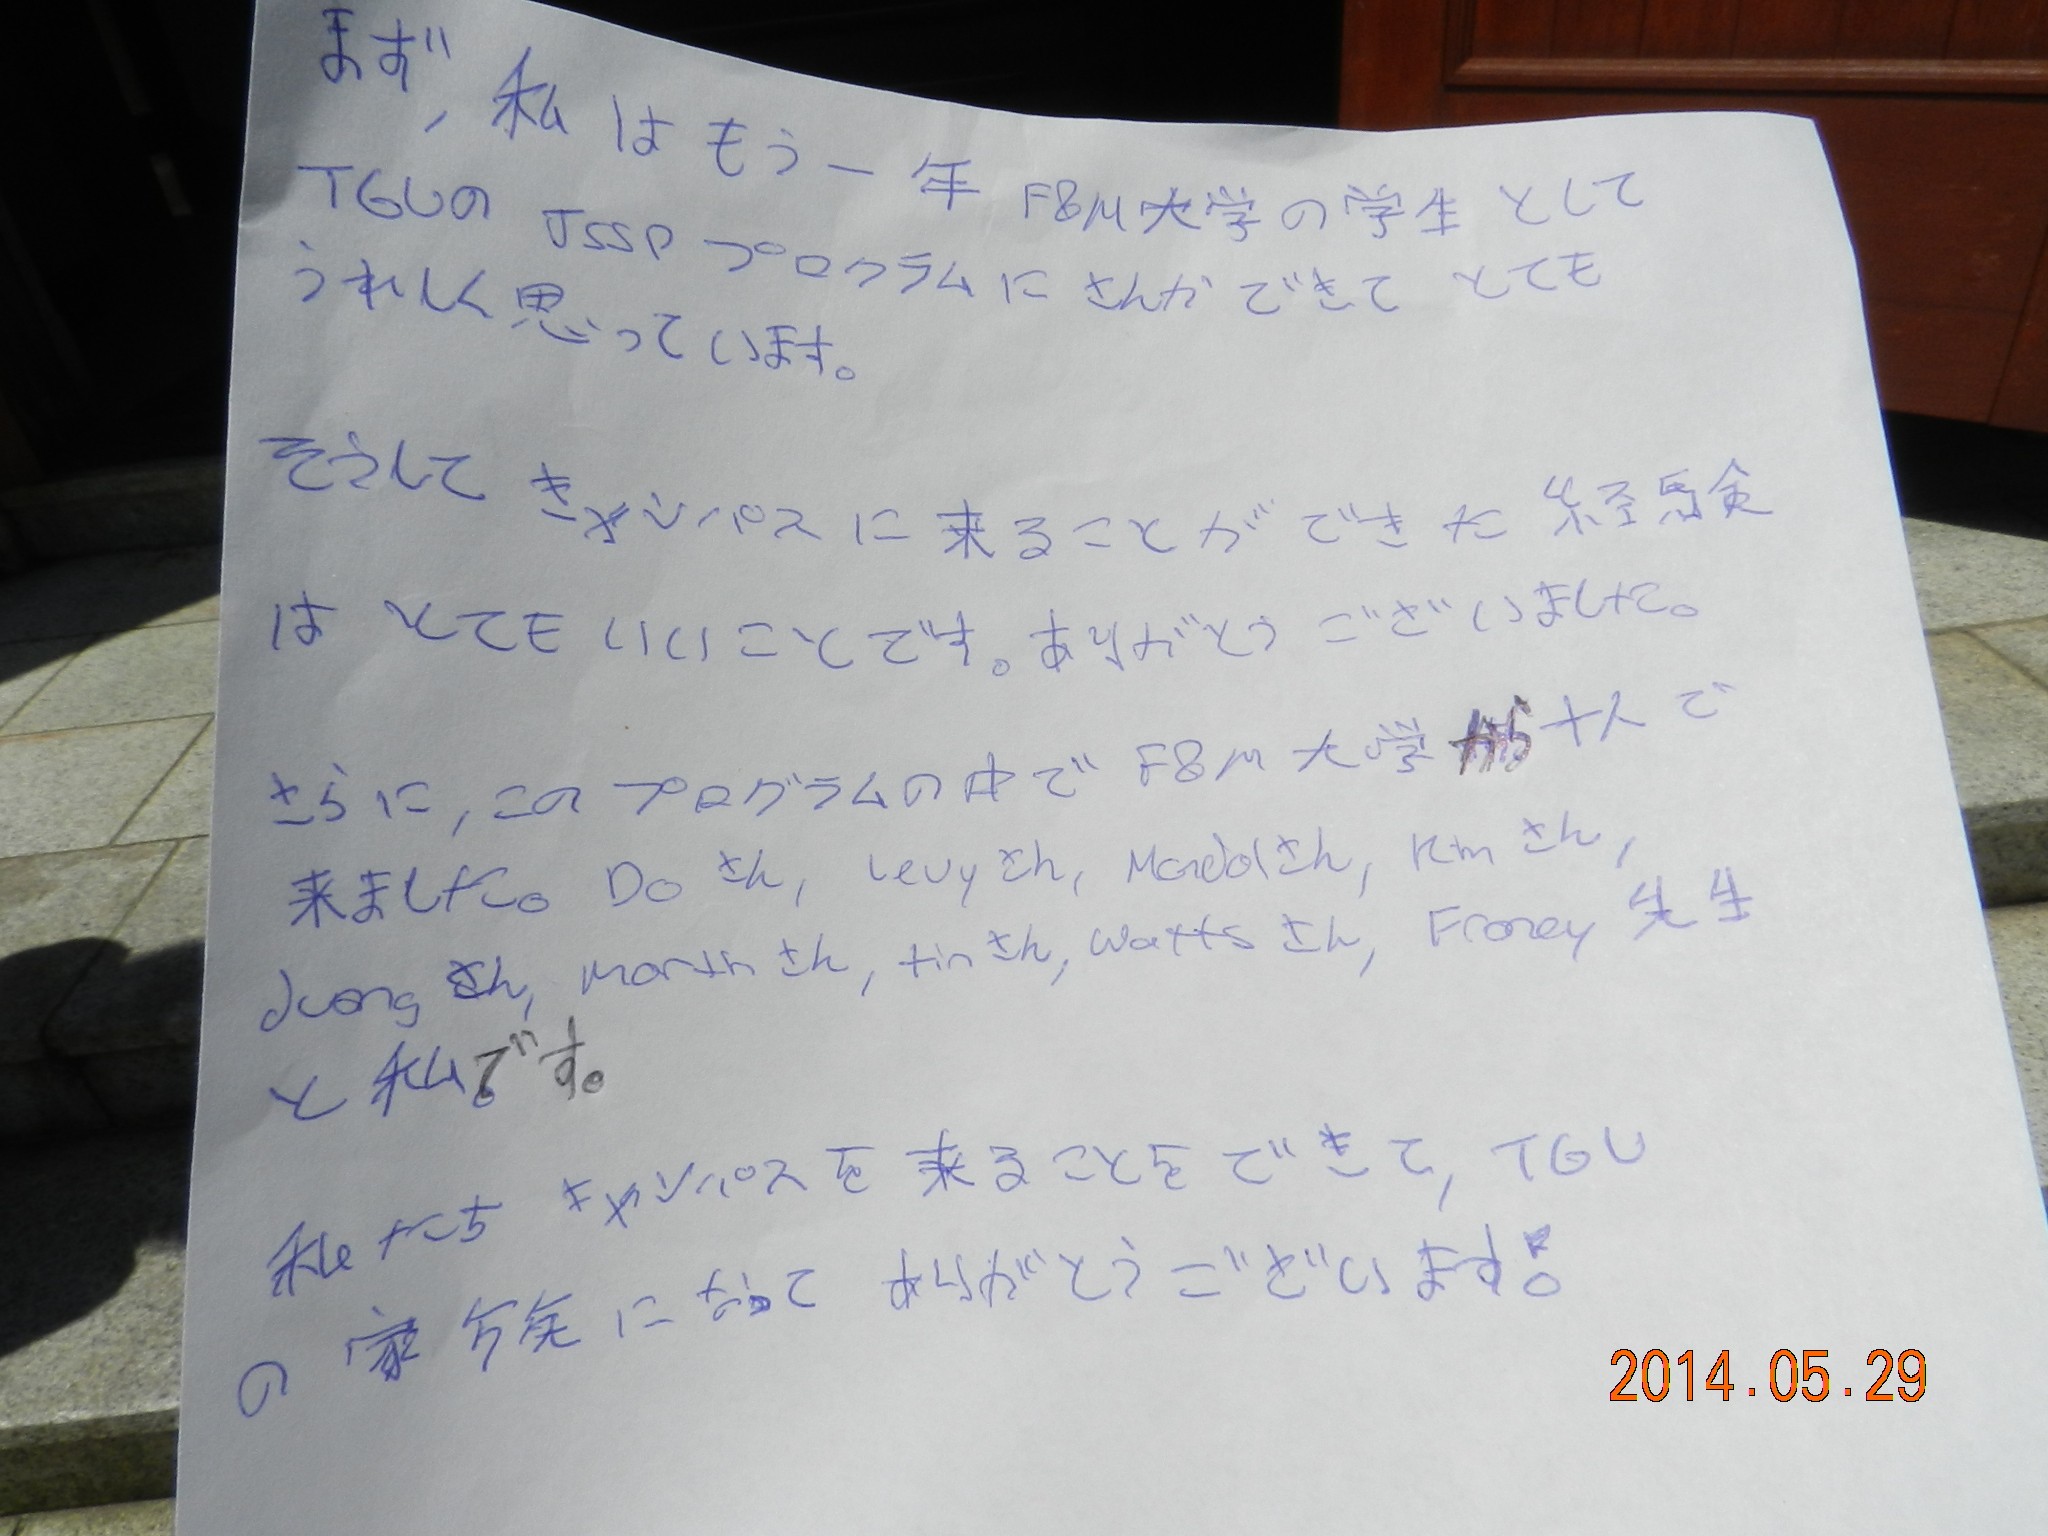 まず, 私はもう一年 F&M大学の学生として
TGUの JSSPプログラムに さんかできて とても
うれしく思っています。
そうして きャンパスに来ることができた 経験
は とてもいいことです。ありがとう ございました。
さらに, このプログラムの中で F&M大学から十人で
来ました。Doさん, Levyさん, さん, Kimさん,
さん, Martinさん, tinさん, Wattsさん, 先生
と私です。
私たち きャンパスを来ることをできて, TGU
の家族になって ありがとうございます!
2014.05.29